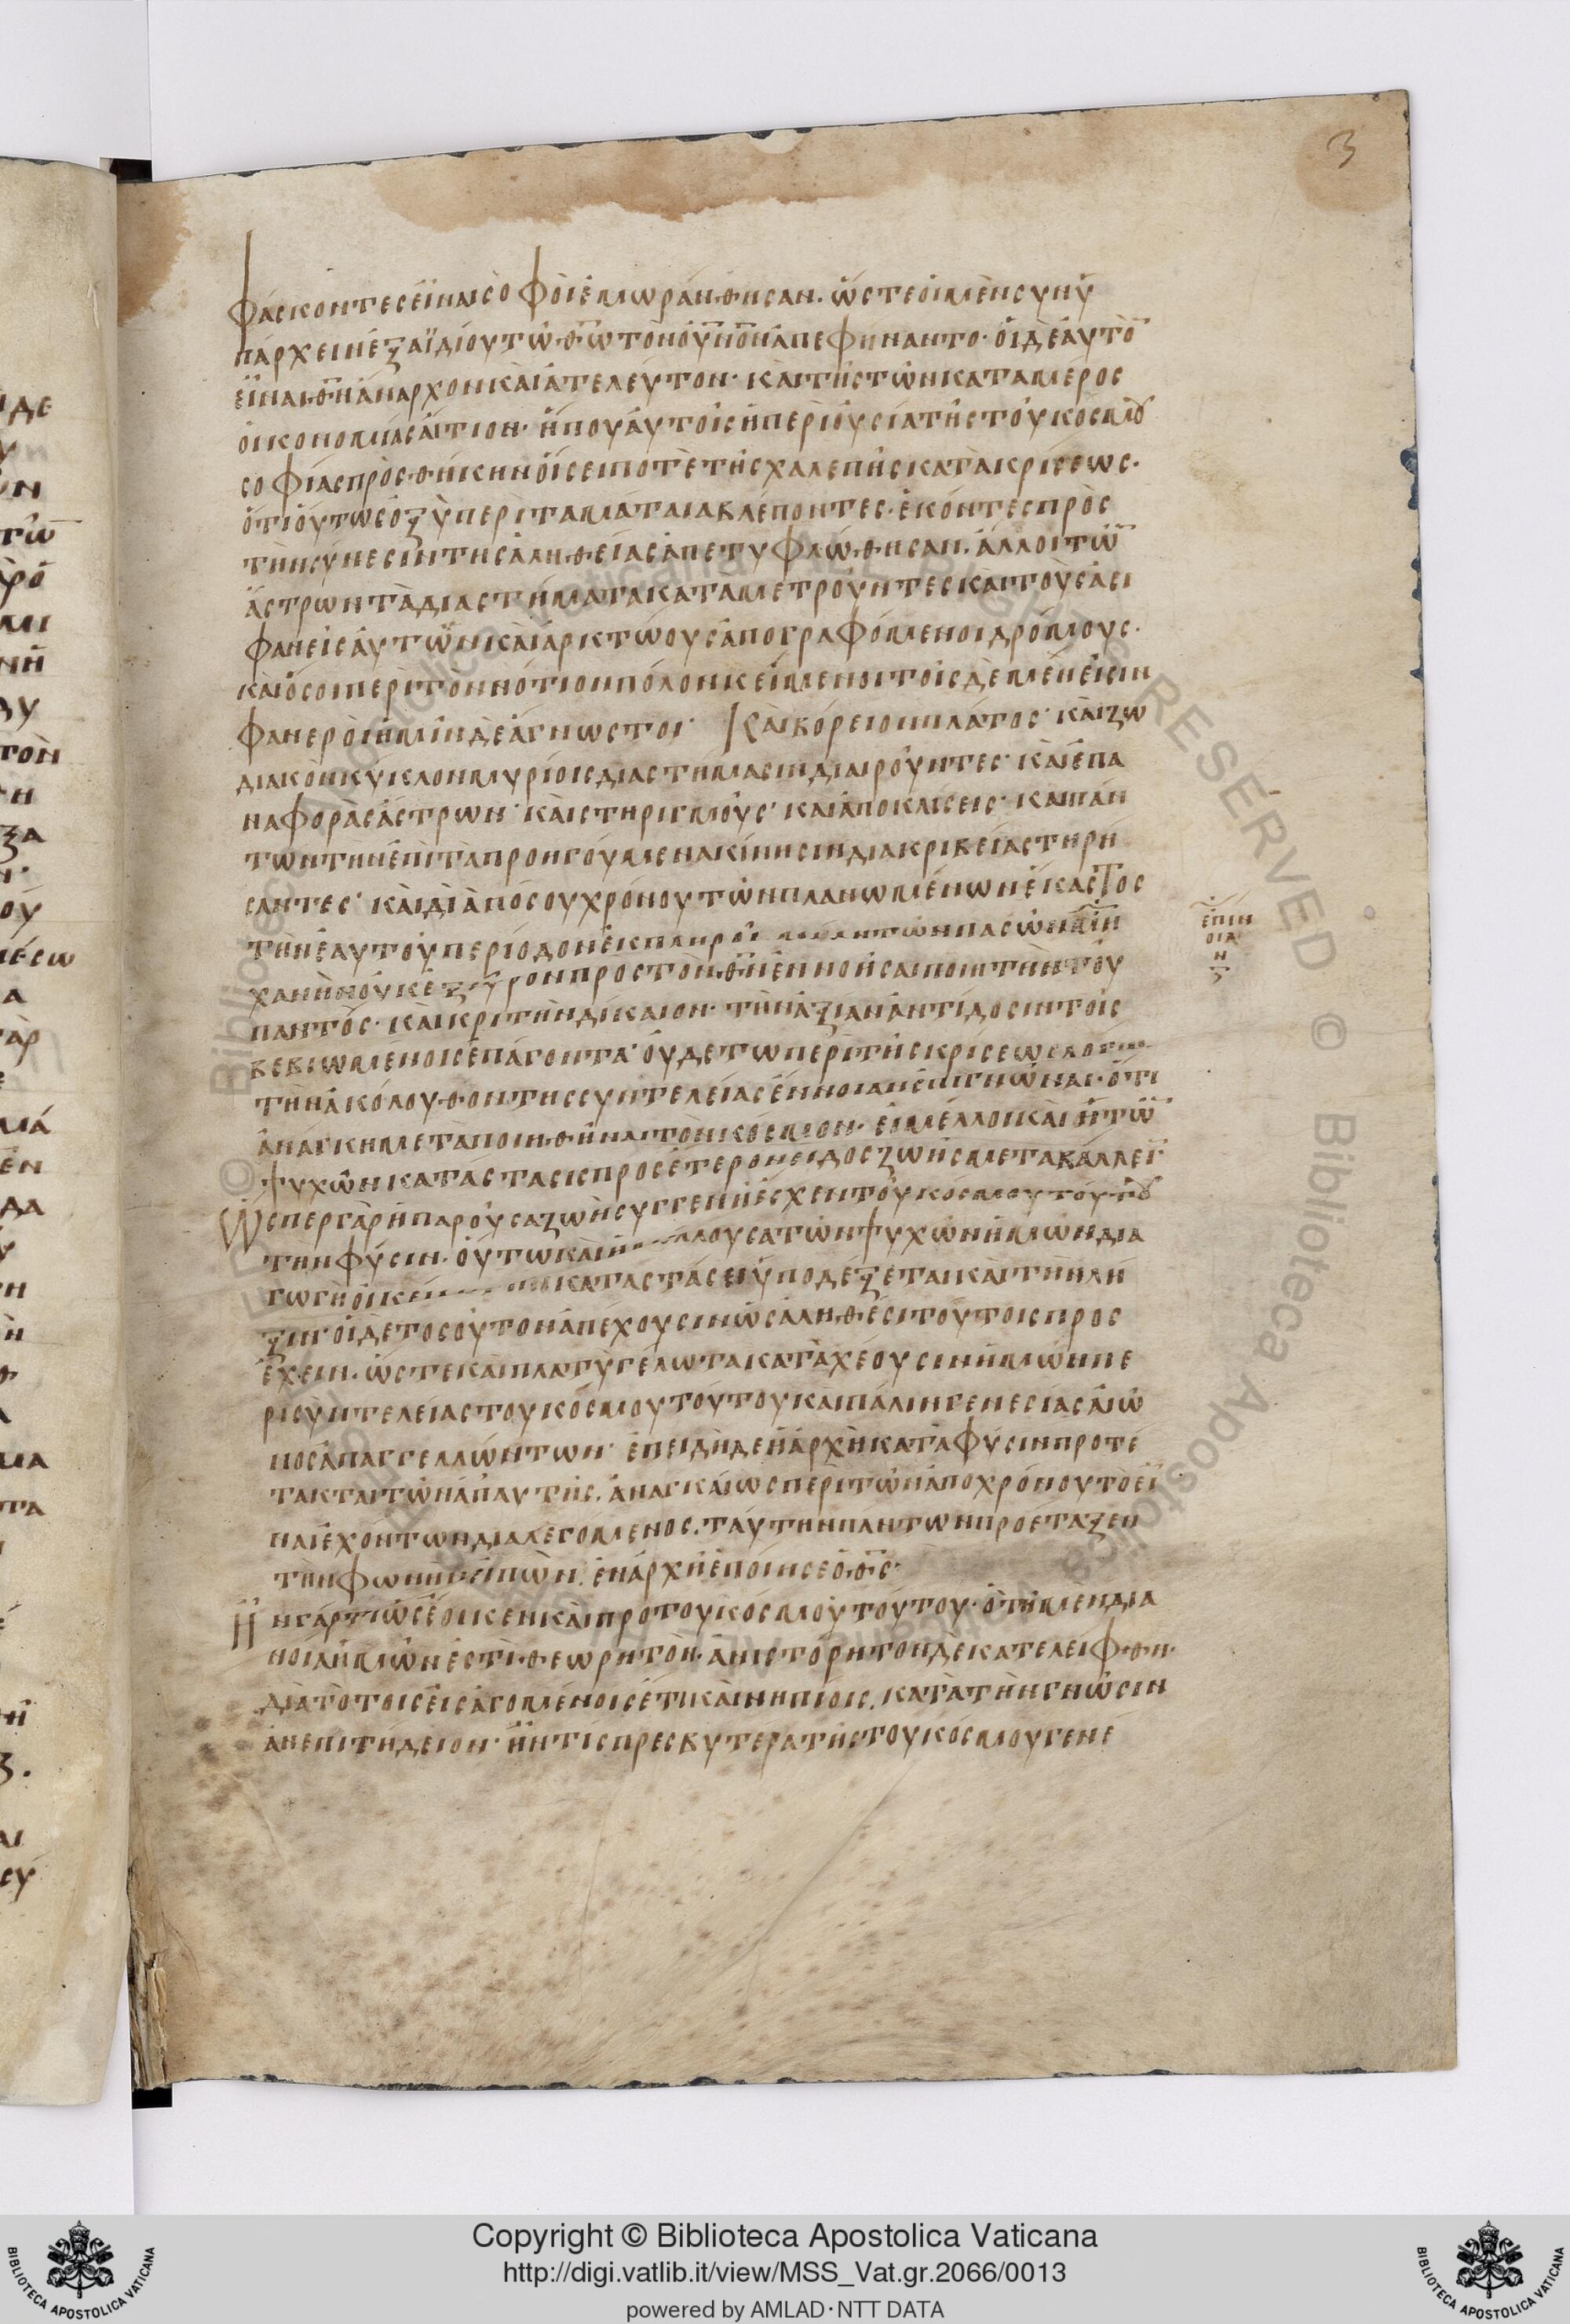 3
φάσκοντες εἶναι σοφοὶ ἐμωράνθησαν. ὥστε οἱ μὲν συνυ
πάρχειν ἐξ ἀϊδίου τῶ θ̅ω̅ τὸν ο̅υ̅ν̅ο̅ν̅ ἀπεφήναντο· οἱ δὲ αὐτὸ̅
εἶναι θ̅ν̅ ἄναρχον καὶ ἀτελεύτον· καὶ τῆς τῶν κατα μέρος
οἰκονομίας αἴτιον· ἦπου αὐτοῖς ἡ περιουσία τῆς τοῦ κόσμου
σοφίας προσθήκην οἴσει ποτὲ τῆς χαλεπῆς κατακρίσεως·
ὅτι οὕτως ὀξὺ περὶ τα μάταια βλέποντες· ἑκόντες πρὸς
τὴν σύνεσιν τῆς ἀληθείας ἀπετυφλώθησαν. ἀλλ οἱ τῶ̅
ἄστρων τὰ διαστήματα καταμετροῦντες καὶ τοὺς ἀει
φανεῖς αὐτῶν καὶ ἀρκτώους ἀπογραφόμενοι δρόμους·
και ὅσοι περὶ τὸν νότιον πόλον κείμενοι τοῖς δε μέν εἰσιν
φανεροὶ ἡμῖν δὲ ἄγνωστοι· Και βόρειον πλάτος· καὶ ζω
διακὸν κύκλον μυρίοις διαστήμασιν διαιροῦντες· καὶ ἐπα
ναφορὰς ἄστρων· καὶ στηριγμοὺς· και ἀποκλίσεις· και παν
των τὴν ἐπὶ τὰ προηγούμενα κίνησιν δι ακριβείας τηρή
σαντες· καὶ διὰ πόσου χρόνου τῶν πλανωμένων ἕκαστος
τὴν ἑαυτοῦ περίοδον ἐκπληροῖ μίαν τῶν πασῶν μη
χανὴν οὐκ ἐξεῦρον προς τὸν θ̅ν̅ ἐννοῆσαι ποιητὴν τοῦ
παντός· καὶ κριτὴν δίκαιον· τὴν ἀξίαν ἀντίδοσιν τοῖς
βεβιωμένοις ἐπάγοντα· οὐδε τω περὶ τῆς κρίσεως λογω
τὴν ἀκόλουθον τῆς συντελείας ἔννοιαν ἐπιγνῶναι· ὅτι
ἀνάγκη μεταποιηθῆναι τὸν κόσμον· εἰ μέλλοι καὶ ἡ τῶ̅
ψυχῶν κατάστασις προς ἕτερον εἶδος ζωῆς μεταβάλλειν·
Ὥσπερ γὰρ ἡ παροῦσα ζωὴ συγγενῆ ἔσχεν τοῦ κοσμου τούτου
την φύσιν· οὕτω καὶ ἡ μέλλουσα τῶν ψυχῶν ἡμῶν δια
γωγὴ οἰκείαν τῆ καταστάσει ὑποδέξεται καὶ τὴν λῆ
ξιν· οἱ δε τοσοῦτον ἀπέχουσιν ὡς ἀληθέσι τούτοις προς
ἔχειν· ὥστε καὶ πλατὺ γέλωτα καταχέουσιν ἡμῶν πε
ρὶ συντελείας τοῦ κόσμου τούτου καὶ παλινγενεσίας αἰῶ
νος ἀπαγγελλώντων· ἐπειδὴ δε ἡ ἀρχὴ κατα φύσιν προτέ
τακται τῶν ἀπ αυτῆς· ἀναγκαίως περὶ τῶν ἀπο χρόνου τὸ εἶ
ναι ἐχόντων διαλεγόμενος. ταύτην πάντων προέταξεν
την φωνὴν εἰπὼν. ἐν ἀρχῆ ἐποίησεν ὁ θ̅ς̅·
Ἦν γάρ τι ὡς ἔοικεν καὶ προ τοῦ κόσμου τούτου· ὅ τῆ μὲν δια
νοία ἡμῶν ἐστὶ θεωρητὸν· ἀνιστόρητον δε κατελείφθη·
διὰ τὸ τοῖς εἰσαγομένοις ἔτι καὶ νηπίοις. κατα τὴν γνῶσιν
ἀνεπιτήδειον· ἦν τις πρεσβυτέρα τῆς τοῦ κόσμου γενέ
ἐπιν
οια
ν
Copyright © Biblioteca Apostolica Vaticana
http://digi.vatlib.it/view/MSS_Vat.gr.2066/0013
powered by AMLAD·NTT DATA
BIBLIOTECA APOSTOLICA VATICANA
BIBLIOTECA APOSTOLICA VATICANA